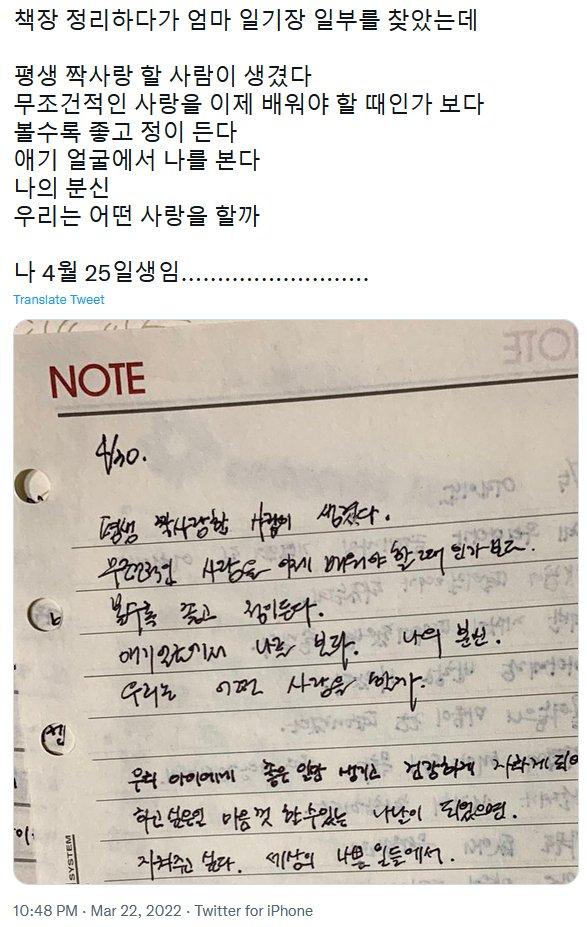 책장 정리하다가 엄마 일기장 일부를 찾았는데
평생 짝사랑 할 사람이 생겼다
무조건적인 사랑을 이제 배워야 할 때인가 보다
볼수록 좋고 정이 든다
애기 얼굴에서 나를 본다
나의 분신
우리는 어떤 사랑을 할까
나 4월 25일생임..........................
Translate Tweet
NOTE
4/30.
평생 짝사랑할 사람이 생겼다.
무조건적인 사랑을 이제 배워야 할 때 인가 보다.
볼수록 좋고 정이든다.
애기 얼굴에서 나를 본다. 나의 분신.
우리는 어떤 사랑을 할까.
우리 아이에게 좋은 일만 생기고 건강하게 자라게 되어
하고 싶은일 마음껏 할 수 있는 되었으면.
지켜주고 싶다. 세상의 나쁜 일들에서.
SYSTEM
10:48 PM · Mar 22, 2022 · Twitter for iPhone